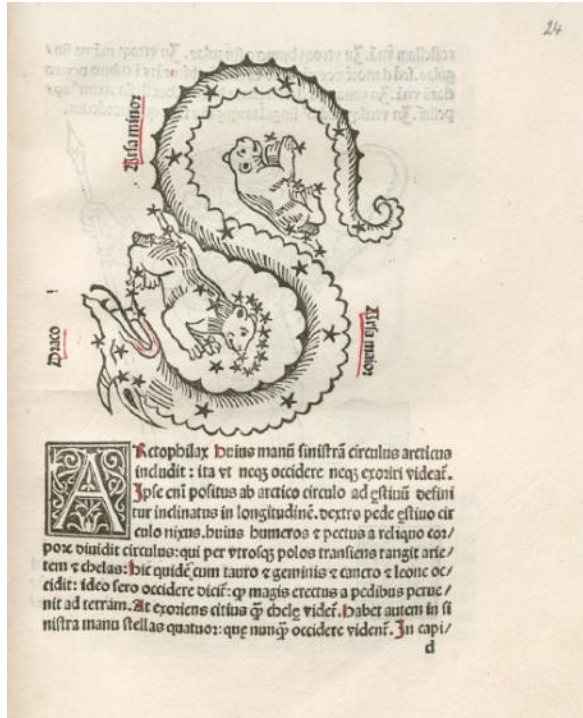 24
Ursa minor
Ursa maior
Draco
ARctophilax huius manū sinistrā circulus arcticus
includit : ita vt neqꝫ occidere neqꝫ exoriri videat᷑.
Ipse em̄ positus ab arctico circulo ad ęstiuū defini
tur inclinatus in longitudinē. dextro pede ęstiuo cir
culo nixus. huius humeros ⁊ pectus a reliquo cor/
pore diuidit circulus: qui per vtrosqꝫ polos transiens tangit arie/
tem ⁊ chelas: hic quidē cum tauro ⁊ geminis ⁊ cancro ⁊ leone oc/
cidit: ideo sero occidere dicit᷑: qꝫ magis erectus a pedibus perue/
nit ad terram. At exoriens citius q̄ꝫ chelę videt᷑. Habet autem in si
nistra manu stellas quatuor: quę nunq̄ꝫ occidere vident᷑. In capi/
d